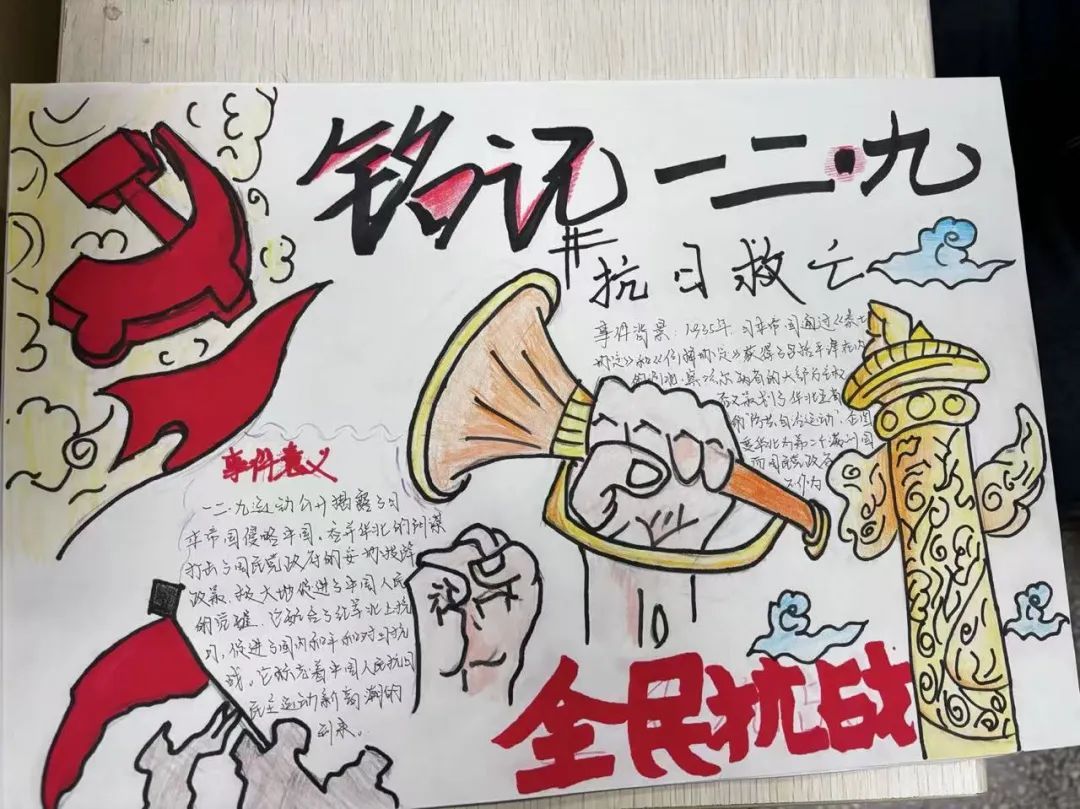 铭记一二·九
抗日救亡
事件背景：1935年，日本帝国通过《秦土
协定》和《何梅协定》获得了包括平津在内
察哈尔两省的大部分主权
后又策划了华北五省
的"防共自治运动"，企图
变华北为第二个满州国
而国民党政府
不作为
事件意义
一二·九运动公开揭露了日
本帝国侵略中国，吞并华北的阴谋
打击了国民党政府的妥协投降
政策，极大地促进了中国人民
的觉醒。它配合了红军北上抗
日，促进了国内和平和对日抗
战，它标志着中国人民抗日
民主运动新高潮的
到来。
全民抗战